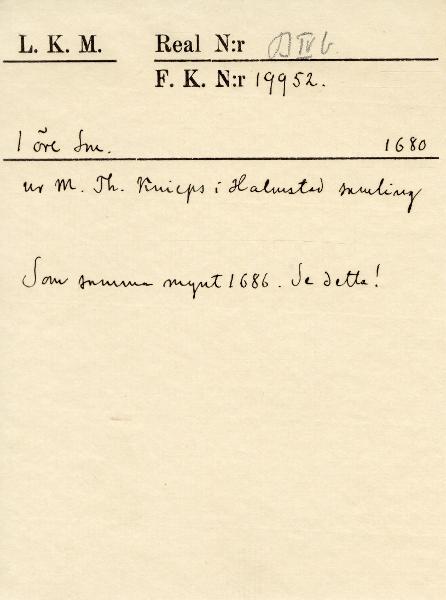 L. K. M. Real N:r D IV b.
F. K. N:r 19952.
1 öre Sm. 1680
ur M. Th. Knieps i Halmstad samling
Som samma mynt 1686. Se detta!